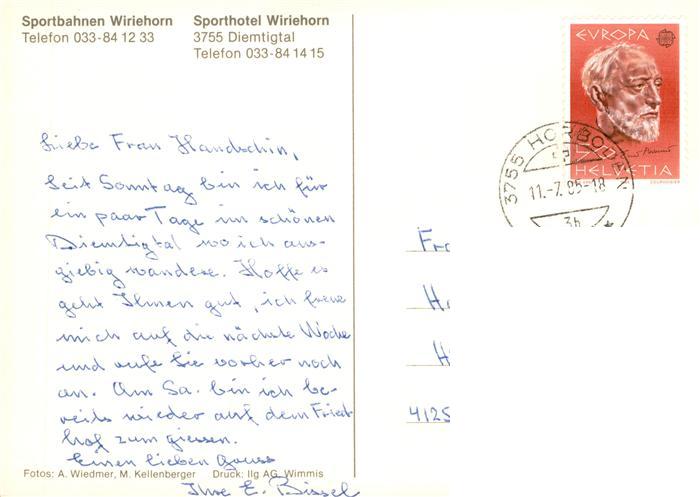 Sportbahnen Wiriehorn
Telefon 033-84 12 33
Sporthotel Wiriehorn
3755 Diemtigtal
Telefon 033-84 14 15
EVROPA
HELVETIA
3755 HORBODEN
11.-7.85-18
Liebe Frau Handschin,
Seit Sonntag bin ich für
ein paar Tage im schönen
Diemtigtal wo ich aus-
giebig wandere. Hoffe es
geht Ihnen gut, ich freue
mich auf die nächste Woche
und rufe Sie vorher noch
an. Am Sa. bin ich be-
reits wieder auf dem Fried-
hof zum giessen.
Einen lieben Gruss
Ihre E. Bissel
Fra
Ha
H
4125
Fotos: A. Wiedmer, M. Kellenberger Druck: Ilg AG, Wimmis